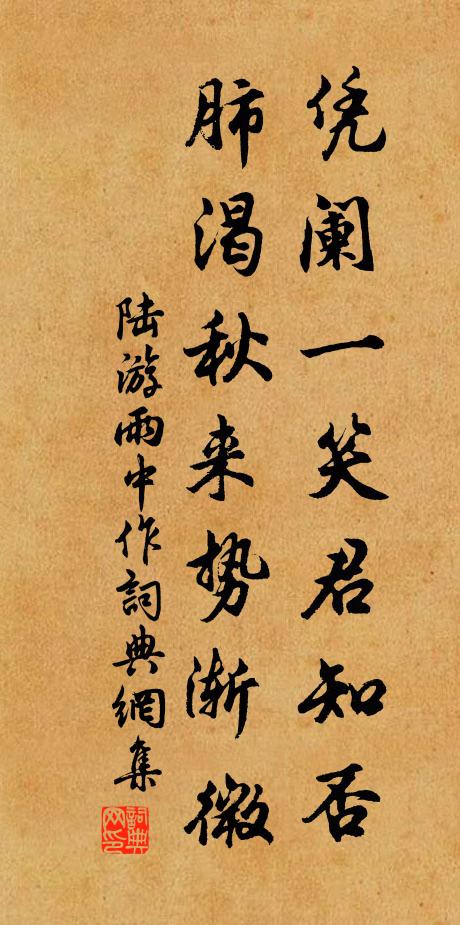 凭阑一笑君知否
肺渴秋来势渐微
陆游雨中作词典網集
詞典网印